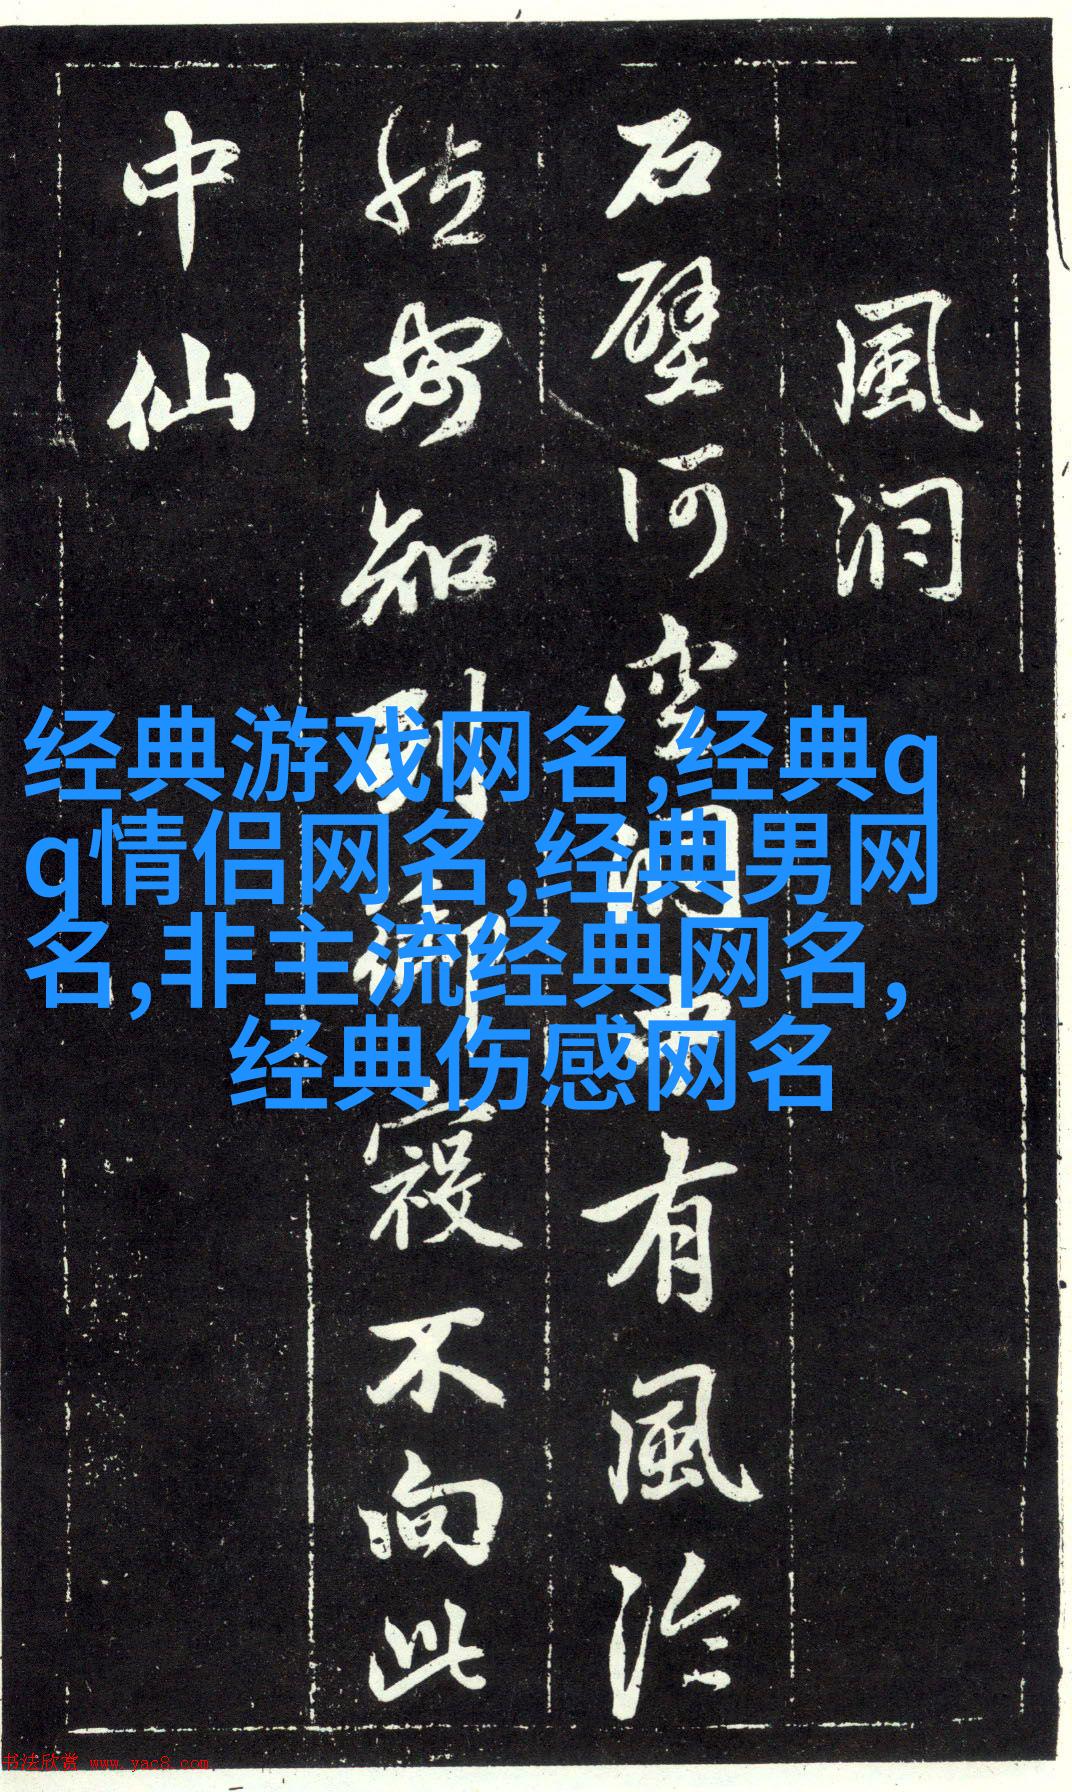 風洞
石壁何空洞中有風泠
然安知列御寇不向此
中仙
经典游戏网名,经典q
q情侣网名,经典男网
名,非主流经典网名,
经典伤感网名
书法欣赏 www.yac8.com